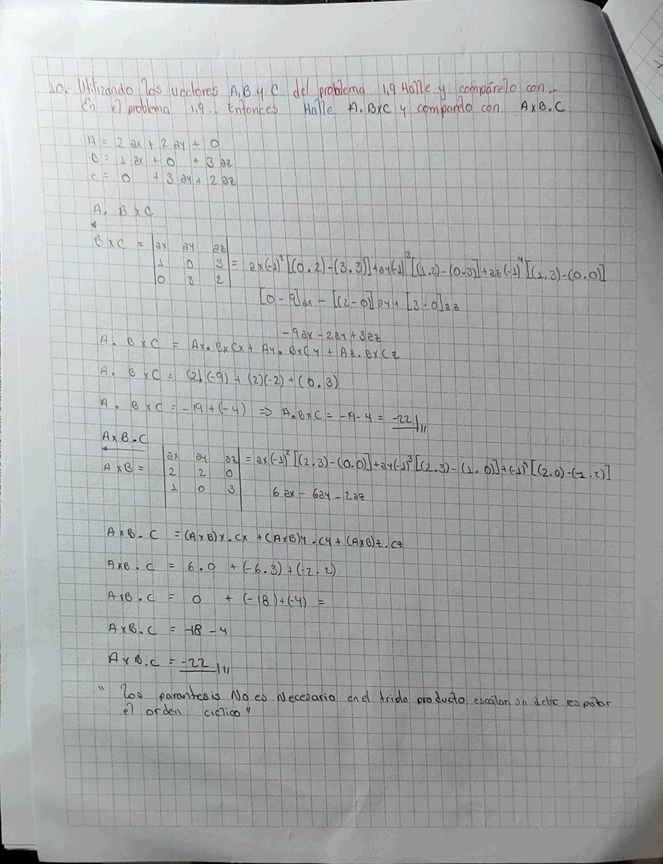 10.- Utilizando los vectores A, B y C del problema 1.9 Halle y compárelo con..
En el problema 1.9.. Entonces Halle A. BxC y comparelo con AxB.C
A = 2ax + 2ay + 0
B = 1ax + 0 + 3az
C = 0 + 3ay + 2az
A. BxC
BxC = | ax ay az | = ax(-1)² [(0.2)-(3.3)] + ay(-1)³ [(1.2)-(0.3)] + az(-1)⁴ [(1.3)-(0.0)]
1 0 3
0 3 2
[0-9]ax - [(2-0]ay + [3-0]az
-9ax - 2ay + 3az
A. BxC = Ax. BxCx + Ay. BxCy + Az. BxCz
A. BxC = (2)(-9) + (2)(-2) + (0.3)
A. BxC = -19 + (-4) => A.BxC = -19-4 = -22
AxB.C
AxB = | ax ay az | = ax(-1)² [(2.3)-(0.0)] + ay(-1)³ [(2.3)-(1.0)] + (-1)⁴ [(2.0)-(1.2)]
2 2 0
1 0 3
6ax - 6ay - 2az
AxB.C = (AxB)x.Cx + (AxB)y.Cy + (AxB)z.Cz
AxB.C = 6.0 + (-6.3) + (-2.2)
AxB.C = 0 + (-18) + (-4) =
AxB.C = -18 - 4
AxB.C = -22
"los parantesis No es Necesario en el producto escalar debe
el orden ciclico"